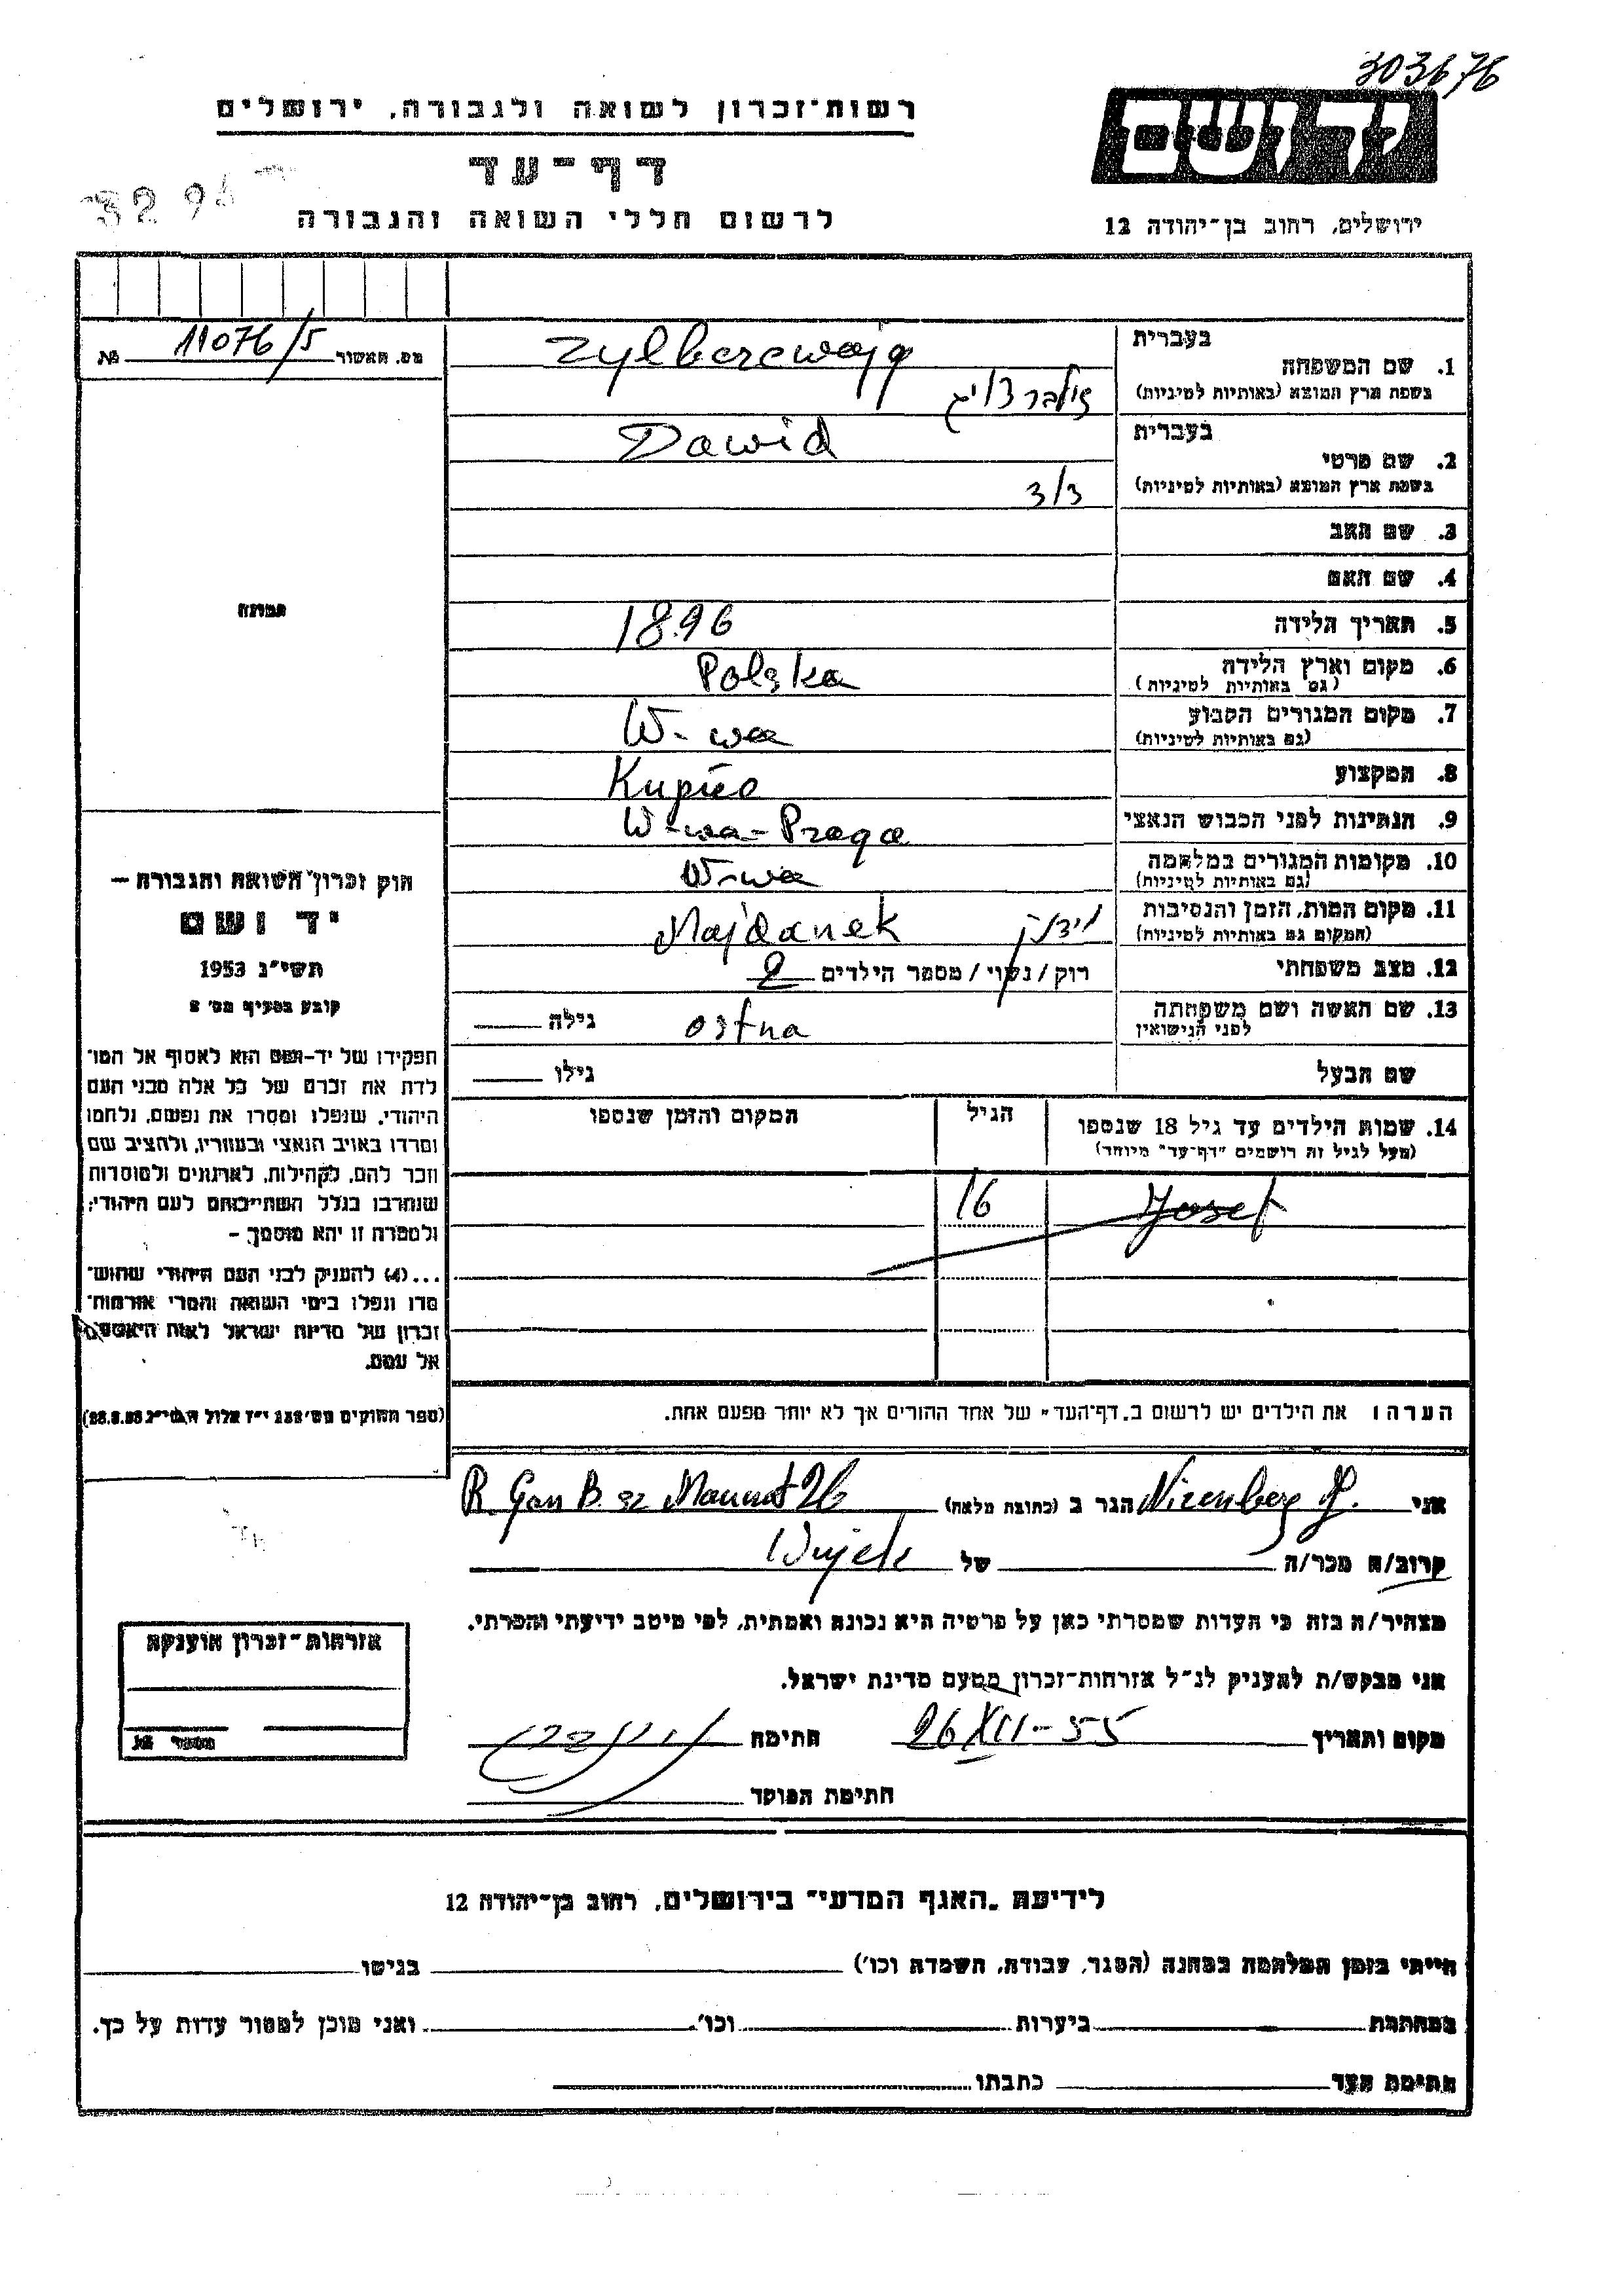 303676
רשות־זכרון לשואה ולגבורה, ירושלים
דף־עד
לרשום חללי השואה והגבורה
ידושם
ירושלים, רחוב בן־יהודה 12
מס. האשור 11076/5 №
בעברית
1. שם המשפחה Zylbercwajg
בשפת ארץ המוצא (באותיות לטיניות) זילברצויג
בעברית
2. שם פרטי Dawid
בשפת ארץ המוצא (באותיות לטיניות) דוד
3. שם האב
4. שם האם
5. תאריך הלידה 1896
6. מקום וארץ הלידה Polska
(גם באותיות לטיניות)
7. מקום המגורים הקבוע W-wa
(גם באותיות לטיניות)
8. המקצוע Kupiec
9. הנתינות לפני הכבוש הנאצי W-wa-Praga
10. מקומות המגורים במלחמה W-wa
(גם באותיות לטיניות)
11. מקום המות, הזמן והנסיבות Majdanek
(המקום גם באותיות לטיניות)
12. מצב משפחתי רוק / נשוי / מספר הילדים 2
13. שם האשה ושם משפחתה גילה
לפני הנישואין
שם הבעל גילו
14. שמות הילדים עד גיל 18 שנספו הגיל המקום והזמן שנספו
(מעל לגיל זה רושמים "דף־עד" מיוחד)
Josef 16
הערה: את הילדים יש לרשום ב„דף־העד" של אחד ההורים אך לא יותר מפעם אחת.
תמונה
חוק זכרון השואה והגבורה —
יד ושם
תשי"ג 1953
קובע בסעיף מס' 2
תפקידו של יד-ושם הוא לאסוף אל המו־
לדת את זכרם של כל אלה מבני העם
היהודי, שנפלו ומסרו את נפשם, נלחמו
ומרדו באויב הנאצי ובעוזריו, ולהציב שם
וזכר להם, לקהילות, לארגונים ולמוסדות
שנחרבו בגלל השתייכותם לעם היהודי;
ולמטרה זו יהא מוסמך —
...(4) להעניק לבני העם היהודי שהוש־
מדו ונפלו בימי השואה והמרי אזרחות־
זכרון של מדינת ישראל לאות היאספם
אל עמם.
(ספר החוקים מס' 132 י"ז אלול תשי"ג 28.8.53)
אני Nirenberg הגר ב (כתובת מלאה) R. Gan B. 26
קרוב/ה מכר/ה של Wujek
מצהיר/ה בזה כי העדות שמסרתי כאן על פרטיה היא נכונה ואמתית, לפי מיטב ידיעתי והכרתי.
אני מבקש/ת להעניק לנ"ל אזרחות־זכרון מטעם מדינת ישראל.
מקום ותאריך 26 XII-55 חתימה
חתימת הפוקד
אזרחות־זכרון הוענקה
לידיעת „האגף המדעי" בירושלים, רחוב בן־יהודה 12
הייתי בזמן המלחמה במחנה (הסגר, עבודה, השמדה וכו') בגיטו
במחתרת ביערות וכו'. ואני מוכן למסור עדות על כך.
חתימת העד כתבתו